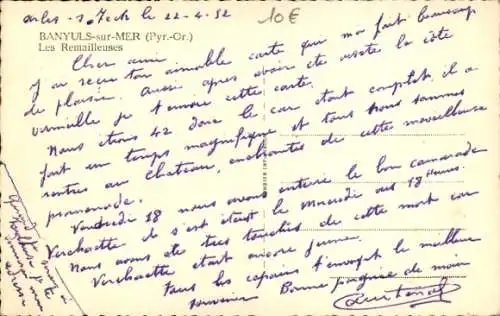 Arles-s-Tech le 22-4-52
10€
BANYULS-sur-MER (Pyr.-Or.)
Les Remailleuses
Cher ami
J'ai reçu ton aimable carte qui m'a fait beaucoup
de plaisir. Aussi après avoir été visité la côte
vermeille je t'envoie cette carte.
Nous étions 42 donc le car était complet, il a
fait un temps magnifique et tous nous sommes
rentrés au Chateau, enchantés de cette merveilleuse
promenade.
Vendredi 18 nous avons enterré le bon camarade
Verchaette il s'est éteint le Mercredi vers 18 heures.
Nous avons été très touchés de cette mort car
Verchaette était encore jeune.
Tous les copains t'envoyent le meilleur
souvenir. Bonne poignée de main